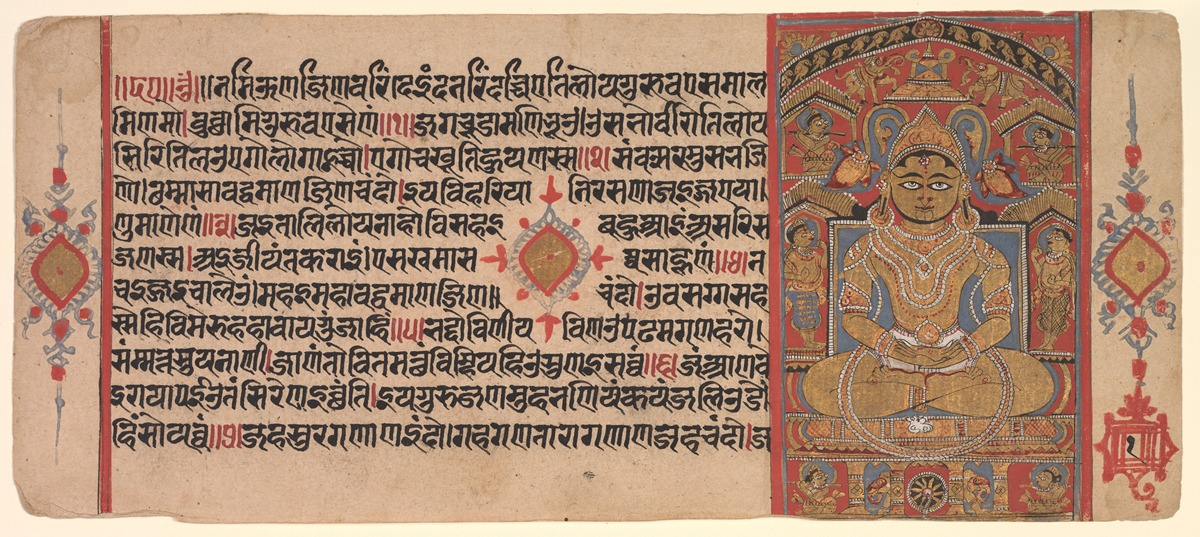 ॥ए६०॥ र्द॥ नमिऊण जिणवरिंदे इंदनरिंदच्चिए तिलोयगुरु उवएसमाल
मिणमो। वुच्छामि गुरुवएसेणं॥१॥ जगचूडामणिभूउ। उसभो वीरो तिलोय
सिरितिलउ। एगो लोगाइच्चो। एगो चरकू तिहुयणस्स॥२॥ संवच्छरमुसभजि
णो। छम्मासा वद्धमाणजिणचंदो। इय विहरिया निरसणा। जइज्ज एउव
माणेणं॥३॥ जइ ता तिलोयनाहो विसहइ बहुआइं असरिस
जणस्स। इय जीयंतकराइं। एस खमा सव्वसाहूणं॥४॥ न
चइज्जइ चालेउं। महइमहावद्धमाणजिण॥ चंदो। उवसग्गसह
स्सेहिवि मेरु जहा वायगुंजाहिं॥५॥ भद्दो विणीय विणउ पढमगणहरो।
संमत्तसुयनाणी। जाणंतो वि तमत्थं विम्हियहियउ सुणइ सव्वं॥६॥ जं आणवे
इ राया पगईउ तं सिरेण इच्छंति। इय गुरुजणमुहभणियं कयंजलिउडे
हिं सोयव्वं॥७॥ जह सुरगणाण इंदो। गहगणतारागणाण जह चंदो। ज
१